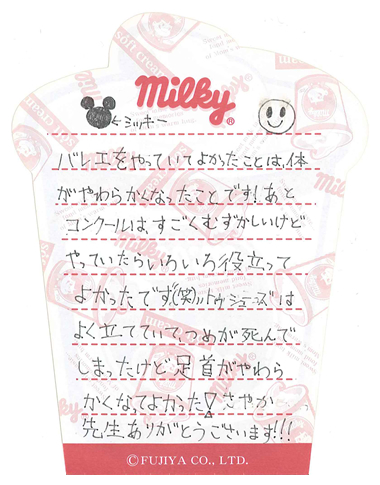 milky®
←ミッキー
バレエをやっていてよかったことは、体
がやわらかくなったことです!あと
コンクールは、すごくむずかしいけど
やっていたらいろいろ役立って
よかったです(笑)トゥシューズは
よく立てていて、つめが死んで
しまったけど足首がやわら
かくなってよかった!さやか
先生ありがとうございます!!!
©FUJIYA CO., LTD.